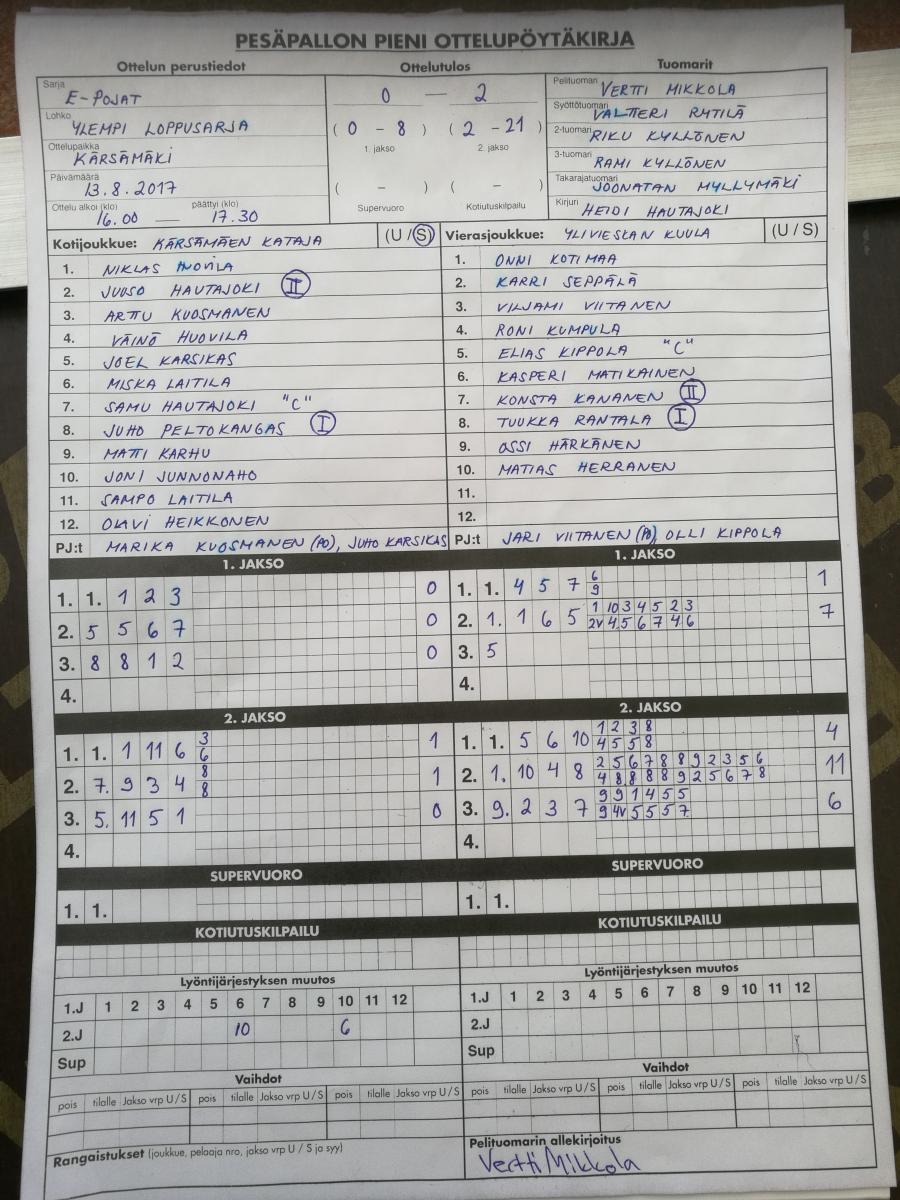 PESÄPALLON PIENI OTTELUPÖYTÄKIRJA
Ottelun perustiedot Ottelutulos Tuomarit
Sarja E-POJAT
Lohko YLEMPI LOPPUSARJA
Ottelupaikka KÄRSÄMÄKI
Päivämäärä 13.8.2017
Ottelu alkoi (klo) päättyi (klo)
16.00 — 17.30
0 — 2
( 0 - 8 ) ( 2 - 21 )
1. jakso 2. jakso
( - ) ( - )
Supervuoro Kotiutuskilpailu
Pelituomari VERTTI MIKKOLA
Syöttötuomari VALTTERI RYTILÄ
2-tuomari RIKU KYLLÖNEN
3-tuomari RAMI KYLLÖNEN
Takarajatuomari JOONATAN MYLLYMÄKI
Kirjuri HEIDI HAUTAJOKI
Kotijoukkue: KÄRSÄMÄEN KATAJA (U / S)
1. NIKLAS HUOVILA
2. JUUSO HAUTAJOKI II
3. ARTTU KUOSMANEN
4. VÄINÖ HUOVILA
5. JOEL KARSIKAS
6. MISKA LAITILA
7. SAMU HAUTAJOKI "C"
8. JUHO PELTOKANGAS I
9. MATTI KARHU
10. JONI JUNNONAHO
11. SAMPO LAITILA
12. OLAVI HEIKKONEN
PJ:t MARIKA KUOSMANEN (PO), JUHO KARSIKAS
Vierasjoukkue: YLIVIESKAN KUULA (U / S)
1. ONNI KOTIMAA
2. KARRI SEPPÄLÄ
3. VILJAMI VIITANEN
4. RONI KUMPULA
5. ELIAS KIPPOLA "C"
6. KASPERI MATIKAINEN
7. KONSTA KANANEN II
8. TUUKKA RANTALA I
9. OSSI HÄRKÄNEN
10. MATIAS HERRANEN
11.
12.
PJ:t JARI VIITANEN (PO) OLLI KIPPOLA
1. JAKSO
1. 1. 1 2 3 0
2. 5 5 6 7 0
3. 8 8 1 2 0
4.
1. JAKSO
1. 1. 4 5 7 6 1
9
2. 1. 1 6 5 1 10 3 4 5 2 3 7
2V 4 5 6 7 4 6
3. 5
4.
2. JAKSO
1. 1. 1 11 6 3 1
6
2. 7. 9 3 4 8 1
8
3. 5. 11 5 1 0
4.
2. JAKSO
1. 1. 5 6 10 1 2 3 8 4
4 5 5 8
2. 1. 10 4 8 2 5 6 7 8 8 9 2 3 5 6 11
4 8 8 8 8 9 2 5 6 7 8
3. 9. 2 3 7 9 9 1 4 5 5 6
9 4V 5 5 5 7
4.
SUPERVUORO
1. 1.
SUPERVUORO
1. 1.
KOTIUTUSKILPAILU
KOTIUTUSKILPAILU
Lyöntijärjestyksen muutos
1.J 1 2 3 4 5 6 7 8 9 10 11 12
2.J 10 6
Sup
Lyöntijärjestyksen muutos
1.J 1 2 3 4 5 6 7 8 9 10 11 12
2.J
Sup
Vaihdot
pois tilalle Jakso vrp U / S pois tilalle Jakso vrp U / S pois tilalle Jakso vrp U / S
Vaihdot
pois tilalle Jakso vrp U / S pois tilalle Jakso vrp U / S pois tilalle Jakso vrp U / S
Rangaistukset (joukkue, pelaaja nro, jakso vrp U / S ja syy)
Pelituomarin allekirjoitus
Vertti Mikkola